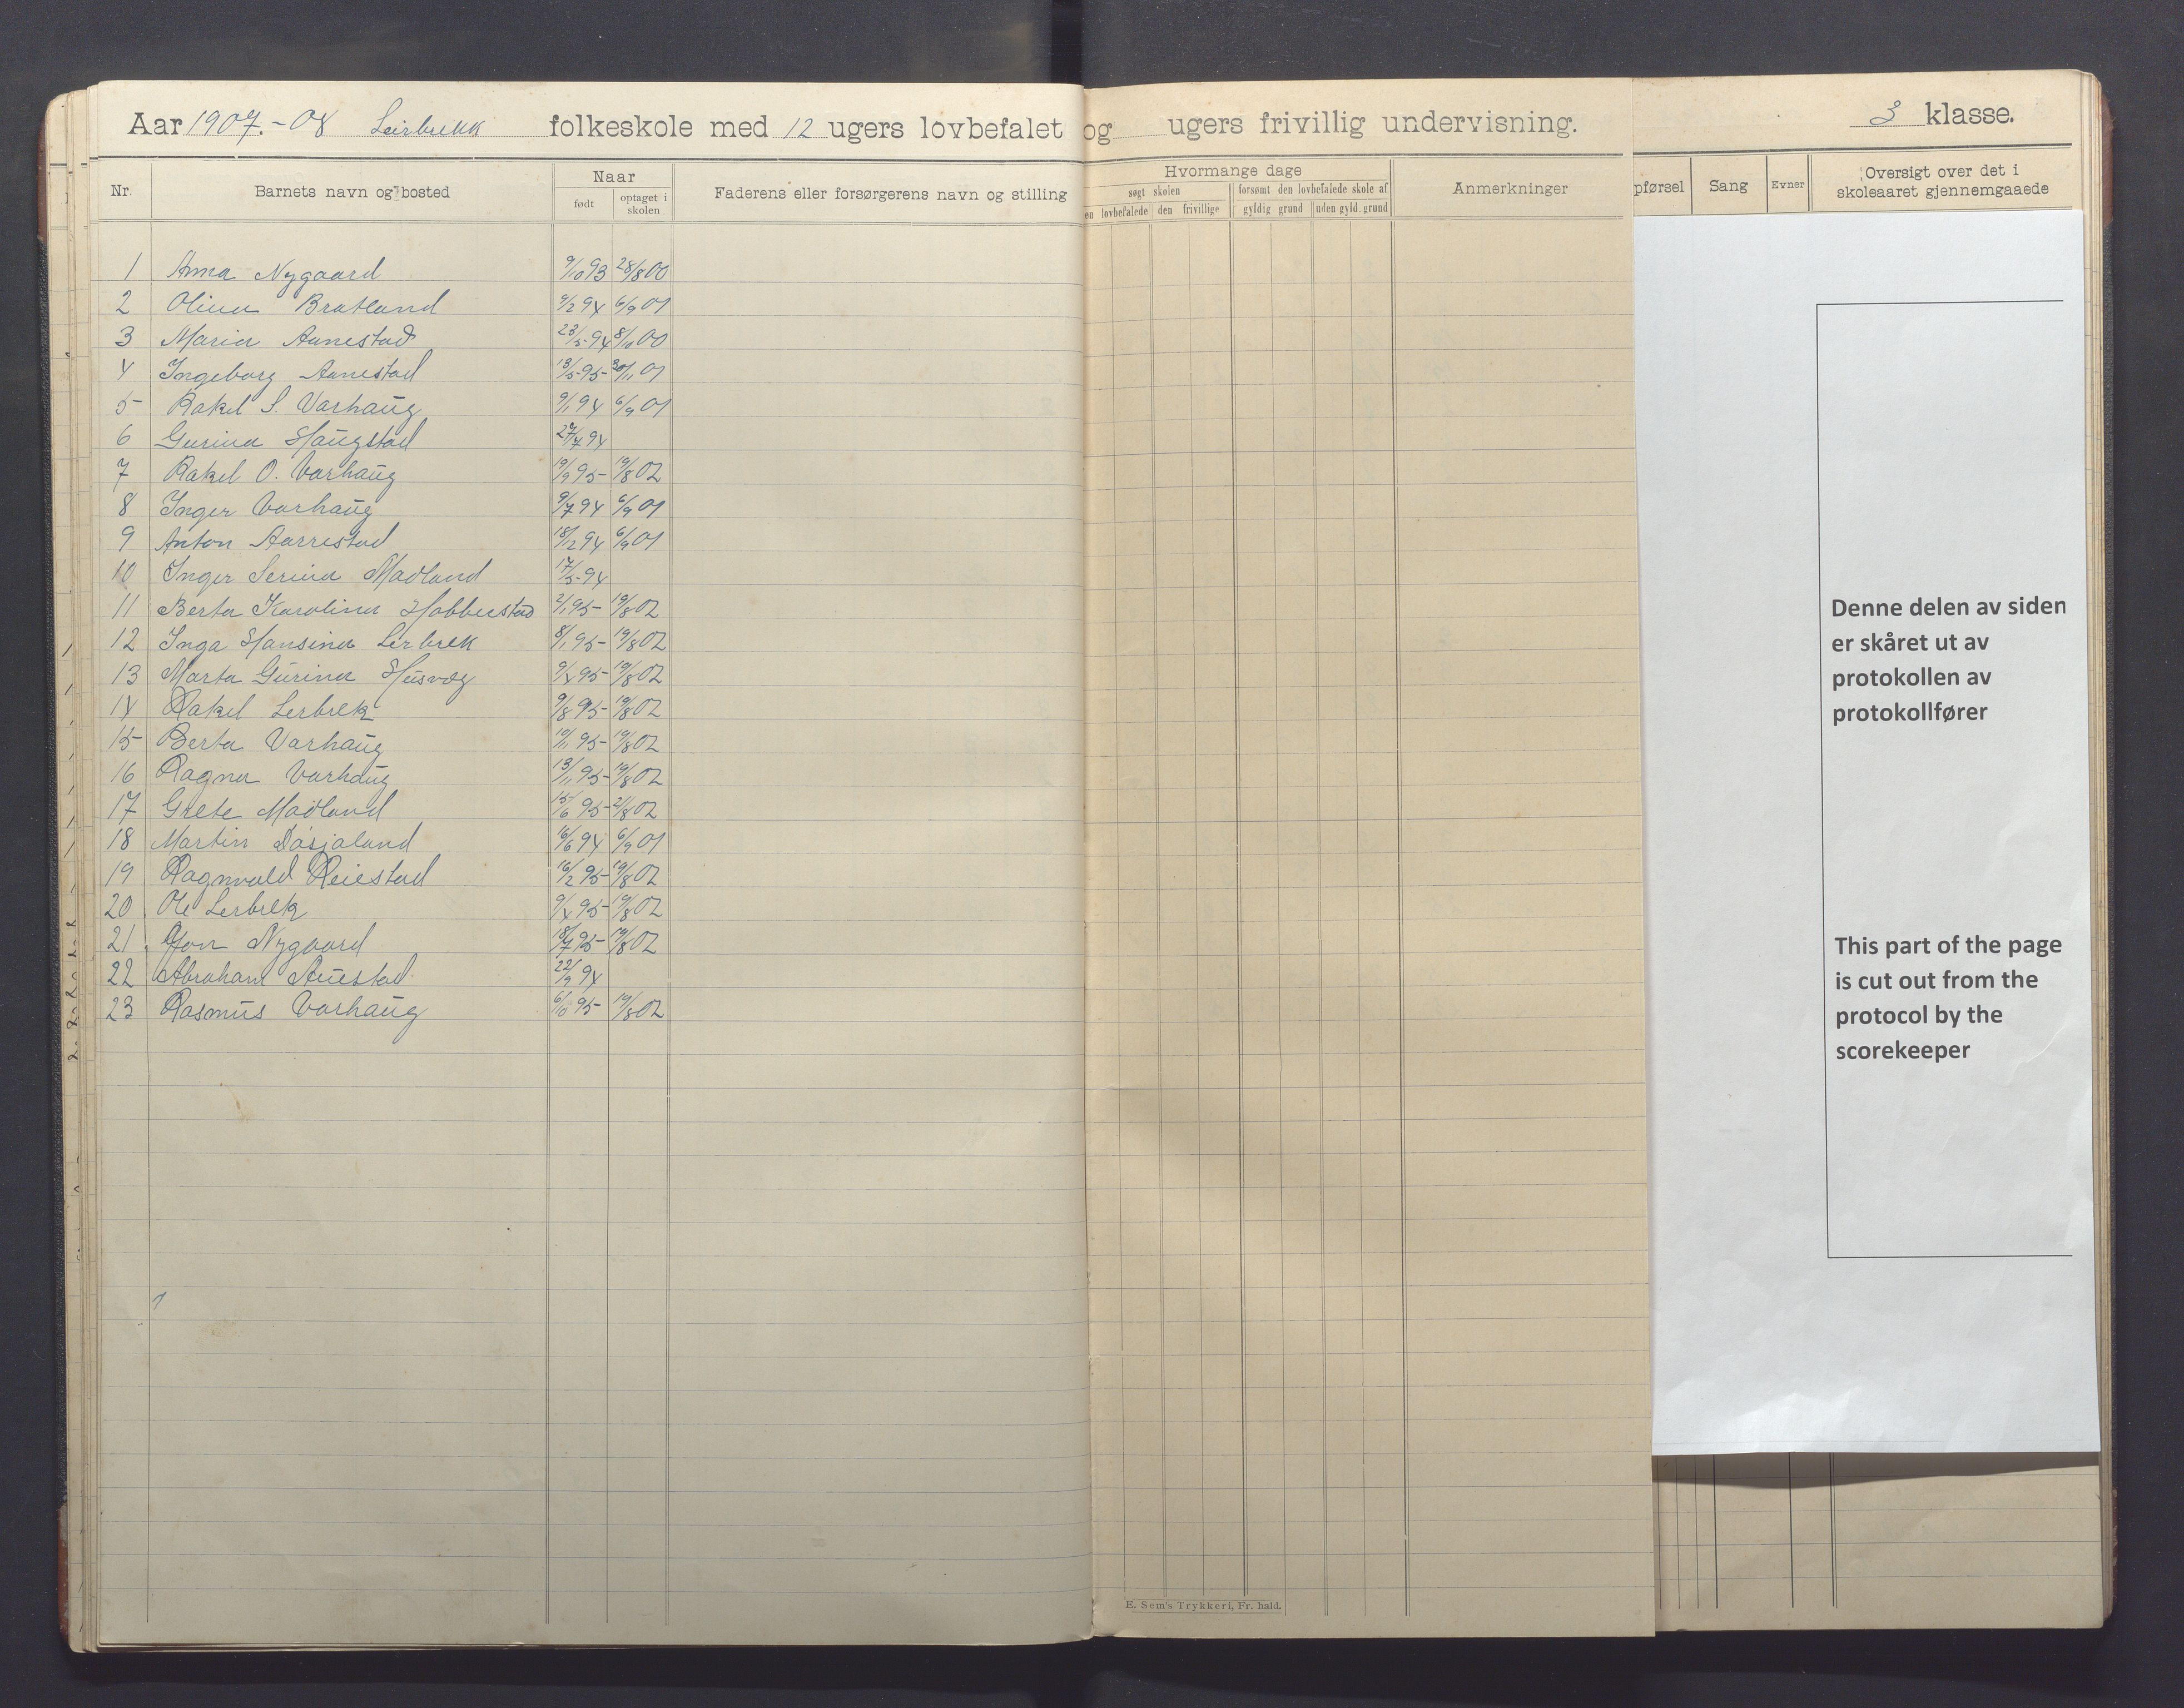 Aar 1907.-08 Leirbrekk folkeskole med 12 ugers lovbefalet og ugers frivillig undervisning. 3 klasse.
Nr. Barnets navn og bosted Naar født optaget i skolen Faderens eller forsørgerens navn og stilling
Hvormange dage
søgt skolen forsømt den lovbefalede skole af
en lovbefalede den frivillige gyldig grund uden gyld. grund
Anmerkninger
pførsel Sang Evner Oversigt over det i
skoleaaret gjennemgaaede
1 Anna Nygaard 9/10 93 28/8 00
2 Olina Bratland 9/2 94 6/9 01
3 Maria Aanestad 23/5-94 8/10 00
4 Ingeborg Aanestad 13/5-95- 30/11 01
5- Rakel S. Varhaug 9/1 94 6/9 01
6 Gurina Haugstad 27/7 94
7 Rakel O. Varhaug 19/9 95- 19/8 02
8 Inger Varhaug 9/7 94 6/9 01
9 Anton Aarrestad 18/12 94 6/9 01
10 Inger Serina Madland 17/5-94
11 Berta Karolina Hobberstad 2/1 95- 19/8 02
12 Inga Hansina Lerbrek 8/1 95- 19/8 02
13 Marta Gurina Husvæg 9/4 95- 19/8 02
14 Rakel Lerbrek 9/8 95- 19/8 02
15- Berta Varhaug 10/11 95- 19/8 02
16 Ragna Varhaug 13/11 95- 19/8 02
17 Grete Madland 15-/6 95- 2/8 02
18 Martin Dåsjaland 16/6 94 6/9 01
19 Ragnvald Reiestad 16/2 95- 19/8 02
20 Ole Lerbrek 9/4 95- 19/8 02
21 Jon Nygaard 18/7 95- 19/8 02
22 Abraham 22/9 94
23 Rasmus Varhaug 6/10 95- 19/8 02
Denne delen av siden
er skåret ut av
protokollen av
protokollfører
This part of the page
is cut out from the
protocol by the
scorekeeper
E. Sem's Trykkeri, Fr. hald.